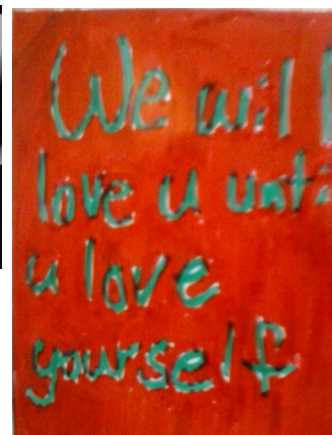 We will
love u unti
u love
yourself